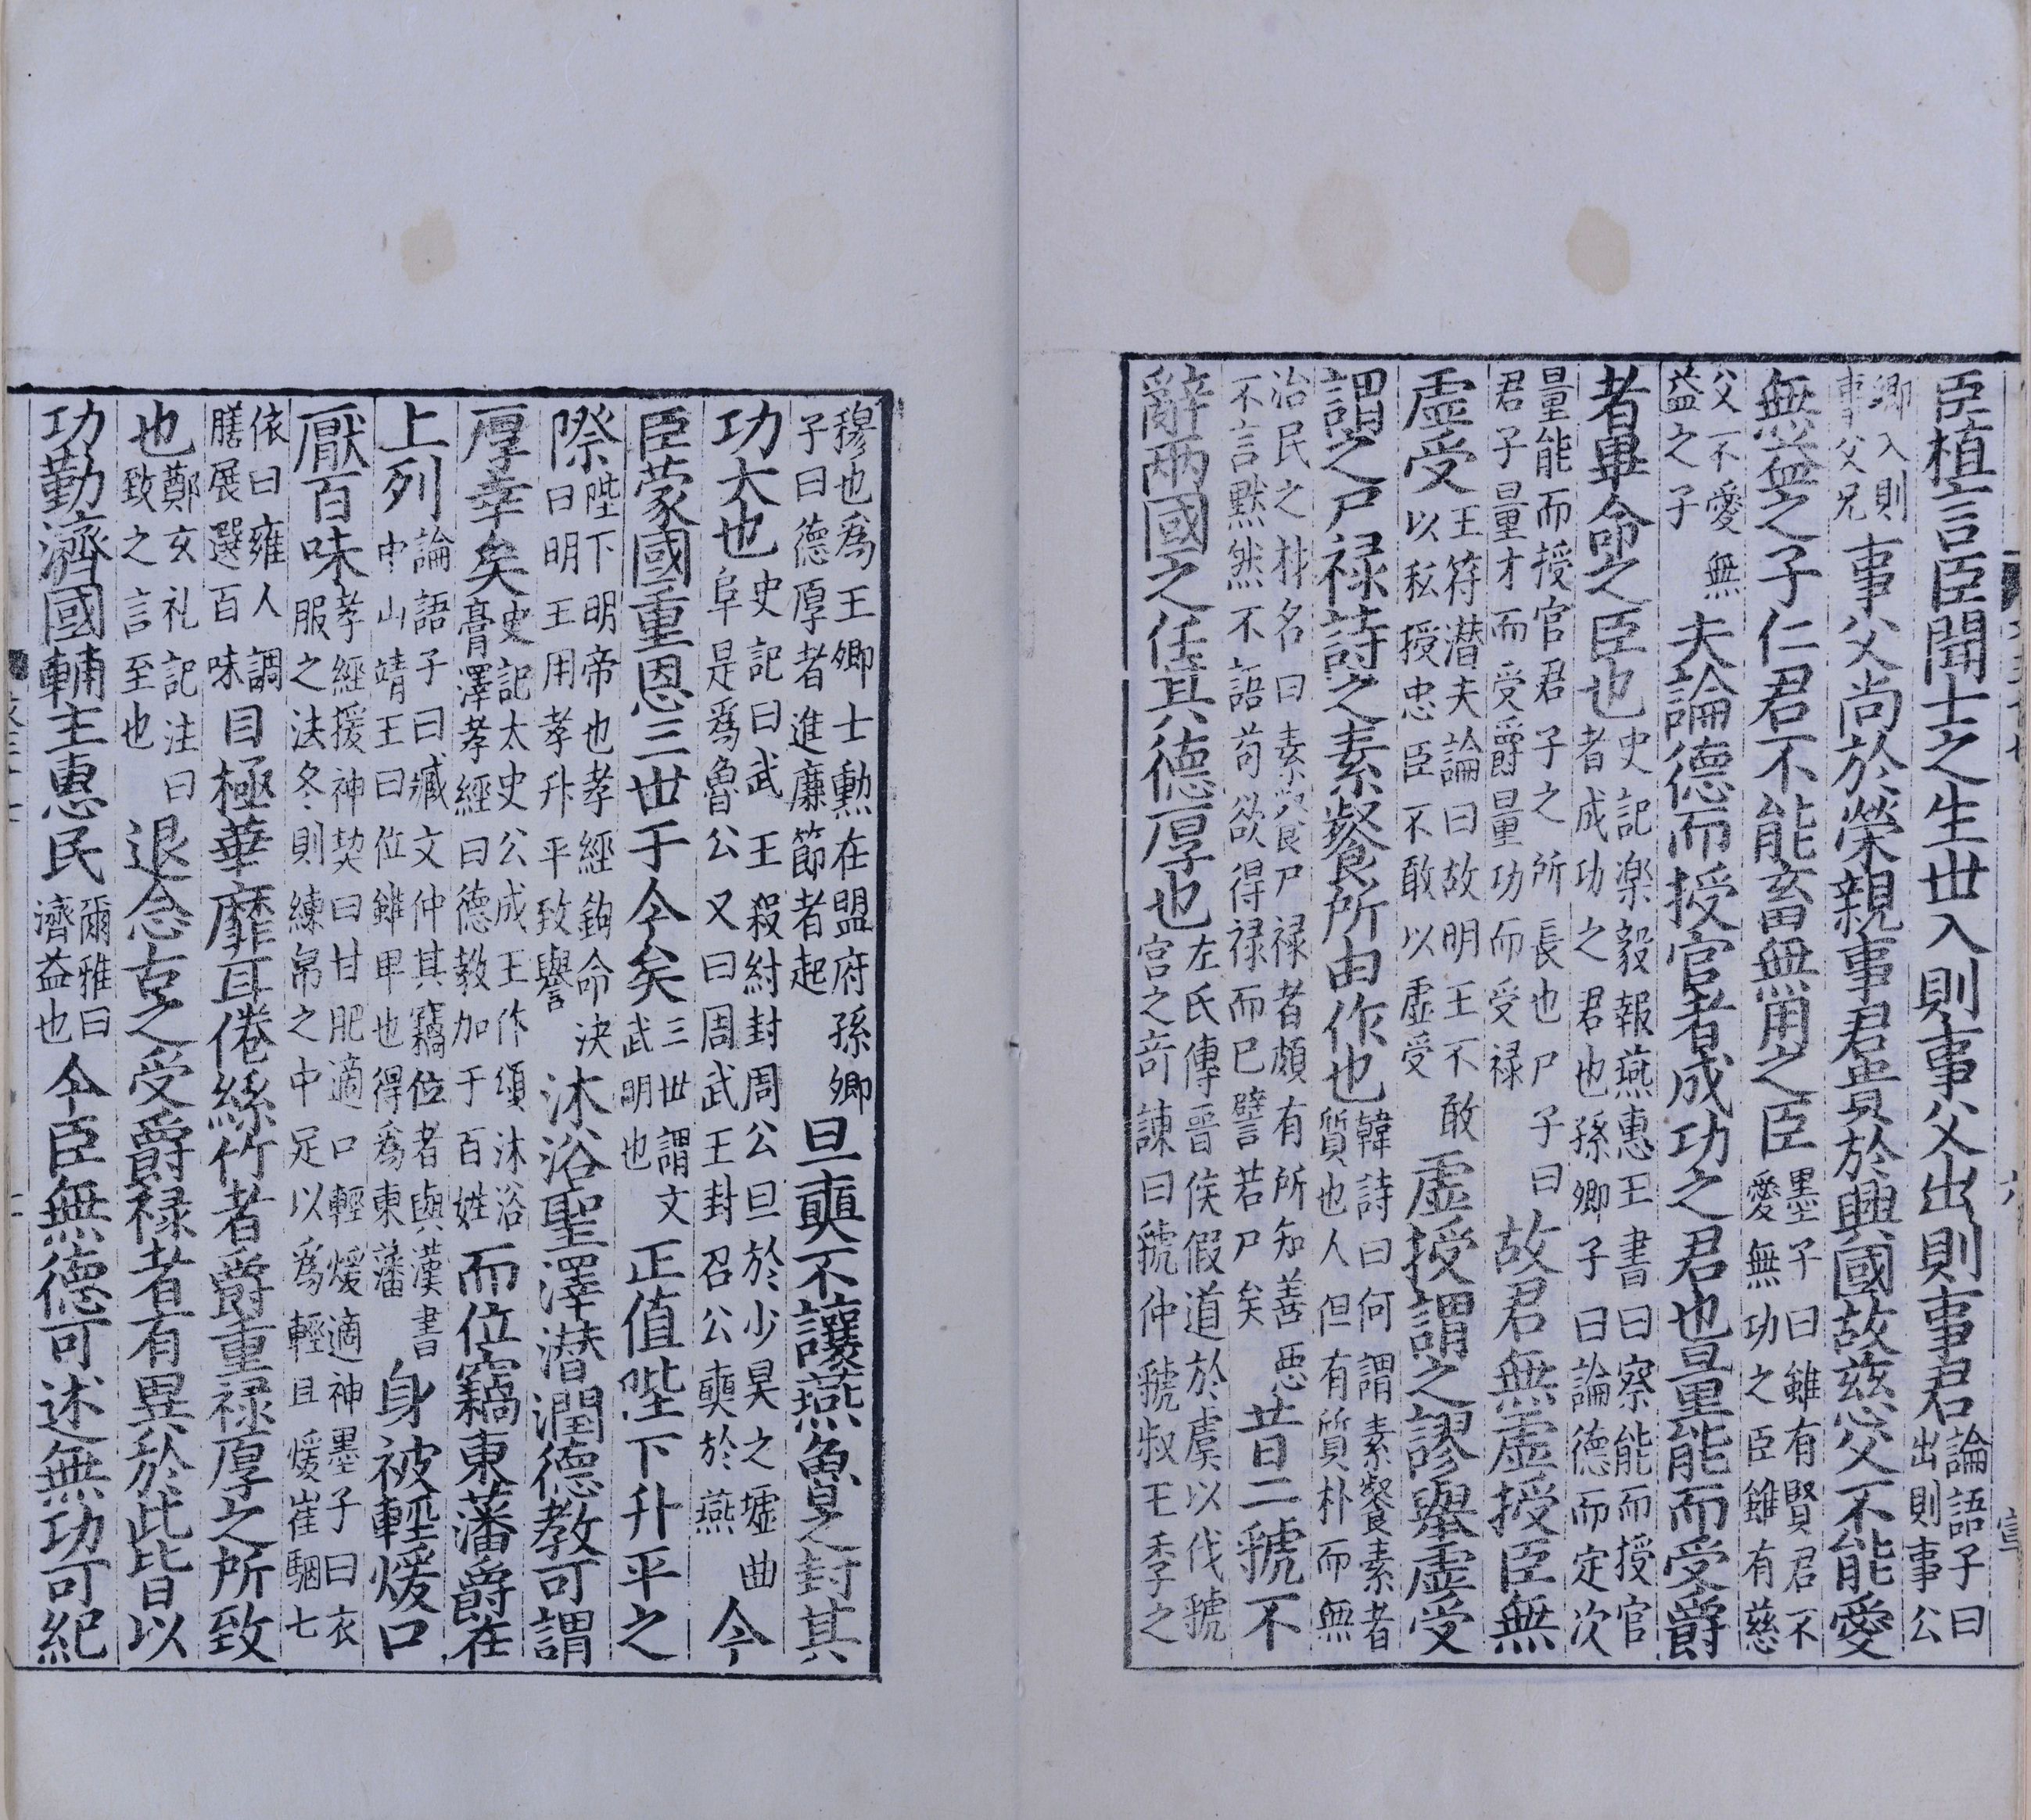 臣植言臣聞士之生世入則事父出則事君論語子曰出則事公
卿入則事父兄事父尚於榮親事君貴於興國故慈父不能愛
無益之子仁君不能畜無用之臣墨子曰雖有賢君不愛無功之臣雖有慈
父不愛無益之子夫論德而授官者成功之君也量能而受爵
者畢命之臣也史記楽毅報燕惠王書曰察能而授官者成功之君也孫卿子曰論德而定次
量能而授官君子之所長也尸子曰君子量才而受爵量功而受禄故君無虛授臣無
虛受王符潜夫論曰故明王不敢以私授忠臣不敢以虛受虛授謂之謬舉虛受
謂之尸禄詩之素餐所由作也韓詩曰何謂素餐素者質也人但有質朴而無
治民之材名曰素餐尸禄者頗有所知善惡不言黙然不語苟欲得禄而已譬若尸矣昔二虢不
辭兩國之任其德厚也左氏傳晋侯假道於虞以伐虢宫之竒諫曰虢仲虢叔王季之
穆也爲王卿士勲在盟府孫卿子曰德厚者進廉節者起旦奭不讓燕魯之封其
功大也史記曰武王殺紂封周公旦於少昊之墟曲阜是爲魯公又曰周武王封召公奭於燕今
臣蒙國重恩三世于今矣三世謂文武明也正值陛下升平之
際陛下明帝也孝經鉤命决曰明王用孝升平致譽沐浴聖澤潜潤德教可謂
厚幸矣史記太史公成王作頌沐浴膏澤孝經曰德教加于百姓而位竊東藩爵在
上列論語子曰臧文仲其竊位者與漢書中山靖王曰位雖卑也得爲東藩身被輕煖口
厭百味孝經援神契曰甘肥適口輕煖適神墨子曰衣服之法冬則練帛之中足以爲輕且煖崔駰七
依曰雍人調膳展選百味目極華靡耳倦絲竹者爵重禄厚之所致
也鄭玄礼記注曰致之言至也退念古之受爵禄者有異於此皆以
功勤濟國輔主惠民爾雅曰濟益也今臣無德可述無功可紀